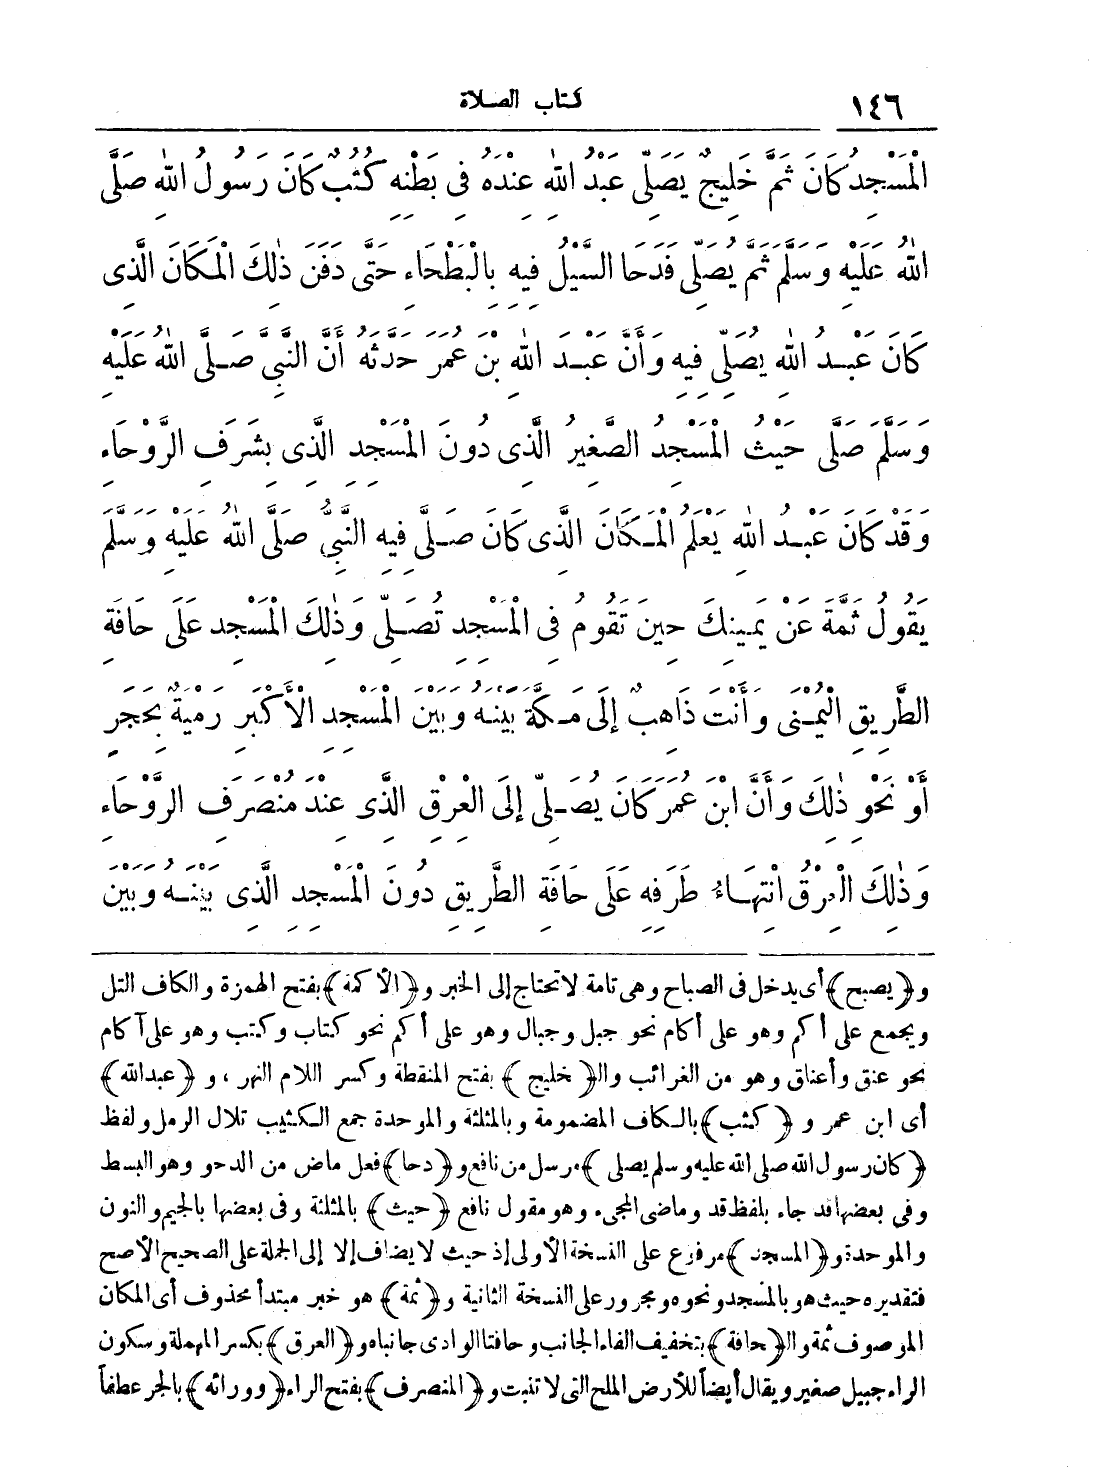 ١٤٦ كتاب الصلاة
الْمَسْجِدُ كَانَ ثَمَّ خَلِيجٌ يُصَلِّي عَبْدُ اللهِ عِنْدَهُ فِي بَطْنِهِ كُثُبٌ كَانَ رَسُولُ اللهِ صَلَّى
اللهُ عَلَيْهِ وَسَلَّمَ ثَمَّ يُصَلِّي فَدَحَا السَّيْلُ فِيهِ بِالْبَطْحَاءِ حَتَّى دَفَنَ ذٰلِكَ الْمَكَانَ الَّذِي
كَانَ عَبْدُ اللهِ يُصَلِّي فِيهِ وَأَنَّ عَبْدَ اللهِ بْنَ عُمَرَ حَدَّثَهُ أَنَّ النَّبِيَّ صَلَّى اللهُ عَلَيْهِ
وَسَلَّمَ صَلَّى حَيْثُ الْمَسْجِدُ الصَّغِيرُ الَّذِي دُونَ الْمَسْجِدِ الَّذِي بِشَرَفِ الرَّوْحَاءِ
وَقَدْ كَانَ عَبْدُ اللهِ يَعْلَمُ الْمَكَانَ الَّذِي كَانَ صَلَّى فِيهِ النَّبِيُّ صَلَّى اللهُ عَلَيْهِ وَسَلَّمَ
يَقُولُ ثَمَّةَ عَنْ يَمِينِكَ حِينَ تَقُومُ فِي الْمَسْجِدِ تُصَلِّي وَذٰلِكَ الْمَسْجِدِ عَلَى حَافَةِ
الطَّرِيقِ الْيُمْنَى وَأَنْتَ ذَاهِبٌ إِلَى مَكَّةَ بَيْنَهُ وَبَيْنَ الْمَسْجِدِ الْأَكْبَرِ رَمْيَةٌ بِحَجَرٍ
أَوْ نَحْوِ ذٰلِكَ وَأَنَّ ابْنَ عُمَرَ كَانَ يُصَلِّي إِلَى الْعِرْقِ الَّذِي عِنْدَ مُنْصَرَفِ الرَّوْحَاءِ
وَذٰلِكَ الْعِرْقُ انْتِهَاءُ طَرَفِهِ عَلَى حَافَةِ الطَّرِيقِ دُونَ الْمَسْجِدِ الَّذِي بَيْنَهُ وَبَيْنَ
و﴿يصبح﴾ أى يدخل فى الصباح وهى تامة لا تحتاج إلى الخبر و﴿الأكمة﴾ بفتح الهمزة والكاف التل
ويجمع على أكم وهو على أكام نحو جبل وجبال وهو على أكم نحو كتاب وكتب وهو على آكام
نحو عنق وأعناق وهو من الغرائب وال﴿خليج﴾ بفتح المنقطة وكسر اللام النهر، و﴿عبدالله﴾
أى ابن عمر و﴿كثب﴾ بالكاف المضمومة وبالمثلثة والموحدة جمع الكثيب تلال الرمل ولفظ
﴿كان رسول الله صلى الله عليه وسلم يصلى﴾ مرسل من نافع و﴿دحا﴾ فعل ماض من الدحو وهو البسط
وفى بعضها قد جاء بلفظ قد وماضى المجىء وهو مقول نافع ﴿حيث﴾ بالمثلثة وفى بعضها بالجيم والنون
والموحدة و﴿المسجد﴾ مرفوع على النسخة الأولى إذ حيث لا يضاف إلا إلى الجملة على الصحيح الأصح
فتقديره حيث هو بالمسجد ونحوه ومجرور على النسخة الثانية و﴿ثمة﴾ هو خبر مبتدأ محذوف أى المكان
الموصوف ثمة وال﴿حافة﴾ بتخفيف الفاء الجانب وحافتا الوادى جانباه و﴿العرق﴾ بكسر المهملة وسكون
الراء جبيل صغير ويقال أيضاً للأرض الملح التى لا تنبت و﴿المنصرف﴾ بفتح الراء ﴿وورائه﴾ بالجر عطفاً